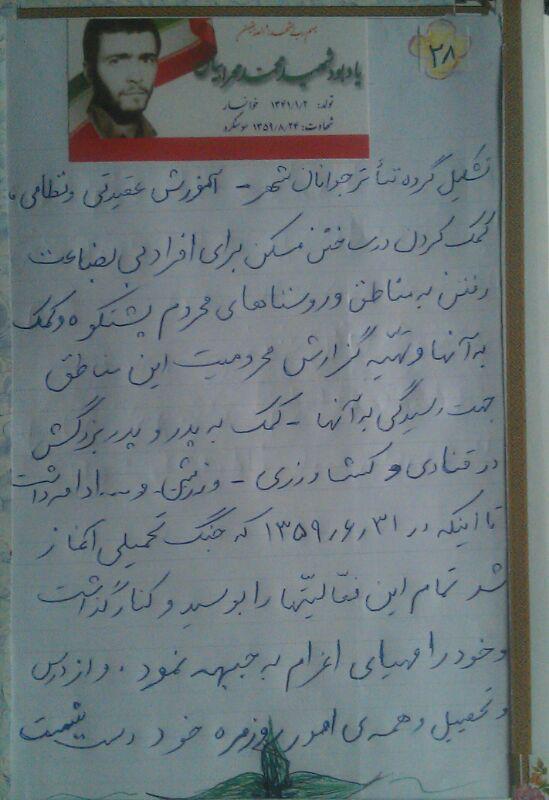 ۲۸
بسم رب الشهداء و الصدیقین
یادبود شهید محمد مرادیان
تولد: ۱۳۴۱/۱/۲ خوانسار
شهادت: ۱۳۵۹/۸/۲۴ سوسنگرد
تشکیل گروه تئاتر جوانان شهر - آموزش عقیدتی و نظامی.
کمک کردن در ساختن مسکن برای افراد بی بضاعت
رفتن به مناطق و روستاهای محروم پشتکوه و کمک
به آنها و تهیّه گزارش محرومیت این مناطق
جهت رسیدگی به آنها - کمک به پدر و پدربزرگش
در قنادی و کشاورزی - ورزش و... ادامه داشت
تا اینکه در ۳۱ر۶ر۱۳۵۹ که جنگ تحمیلی آغاز
شد تمام این فعّالیتها را بوسید و کنار گذاشت
و خود را مهیای اعزام به جبهه نمود. و از درس
و تحصیل و همه‌ی امور روزمره خود دست شست